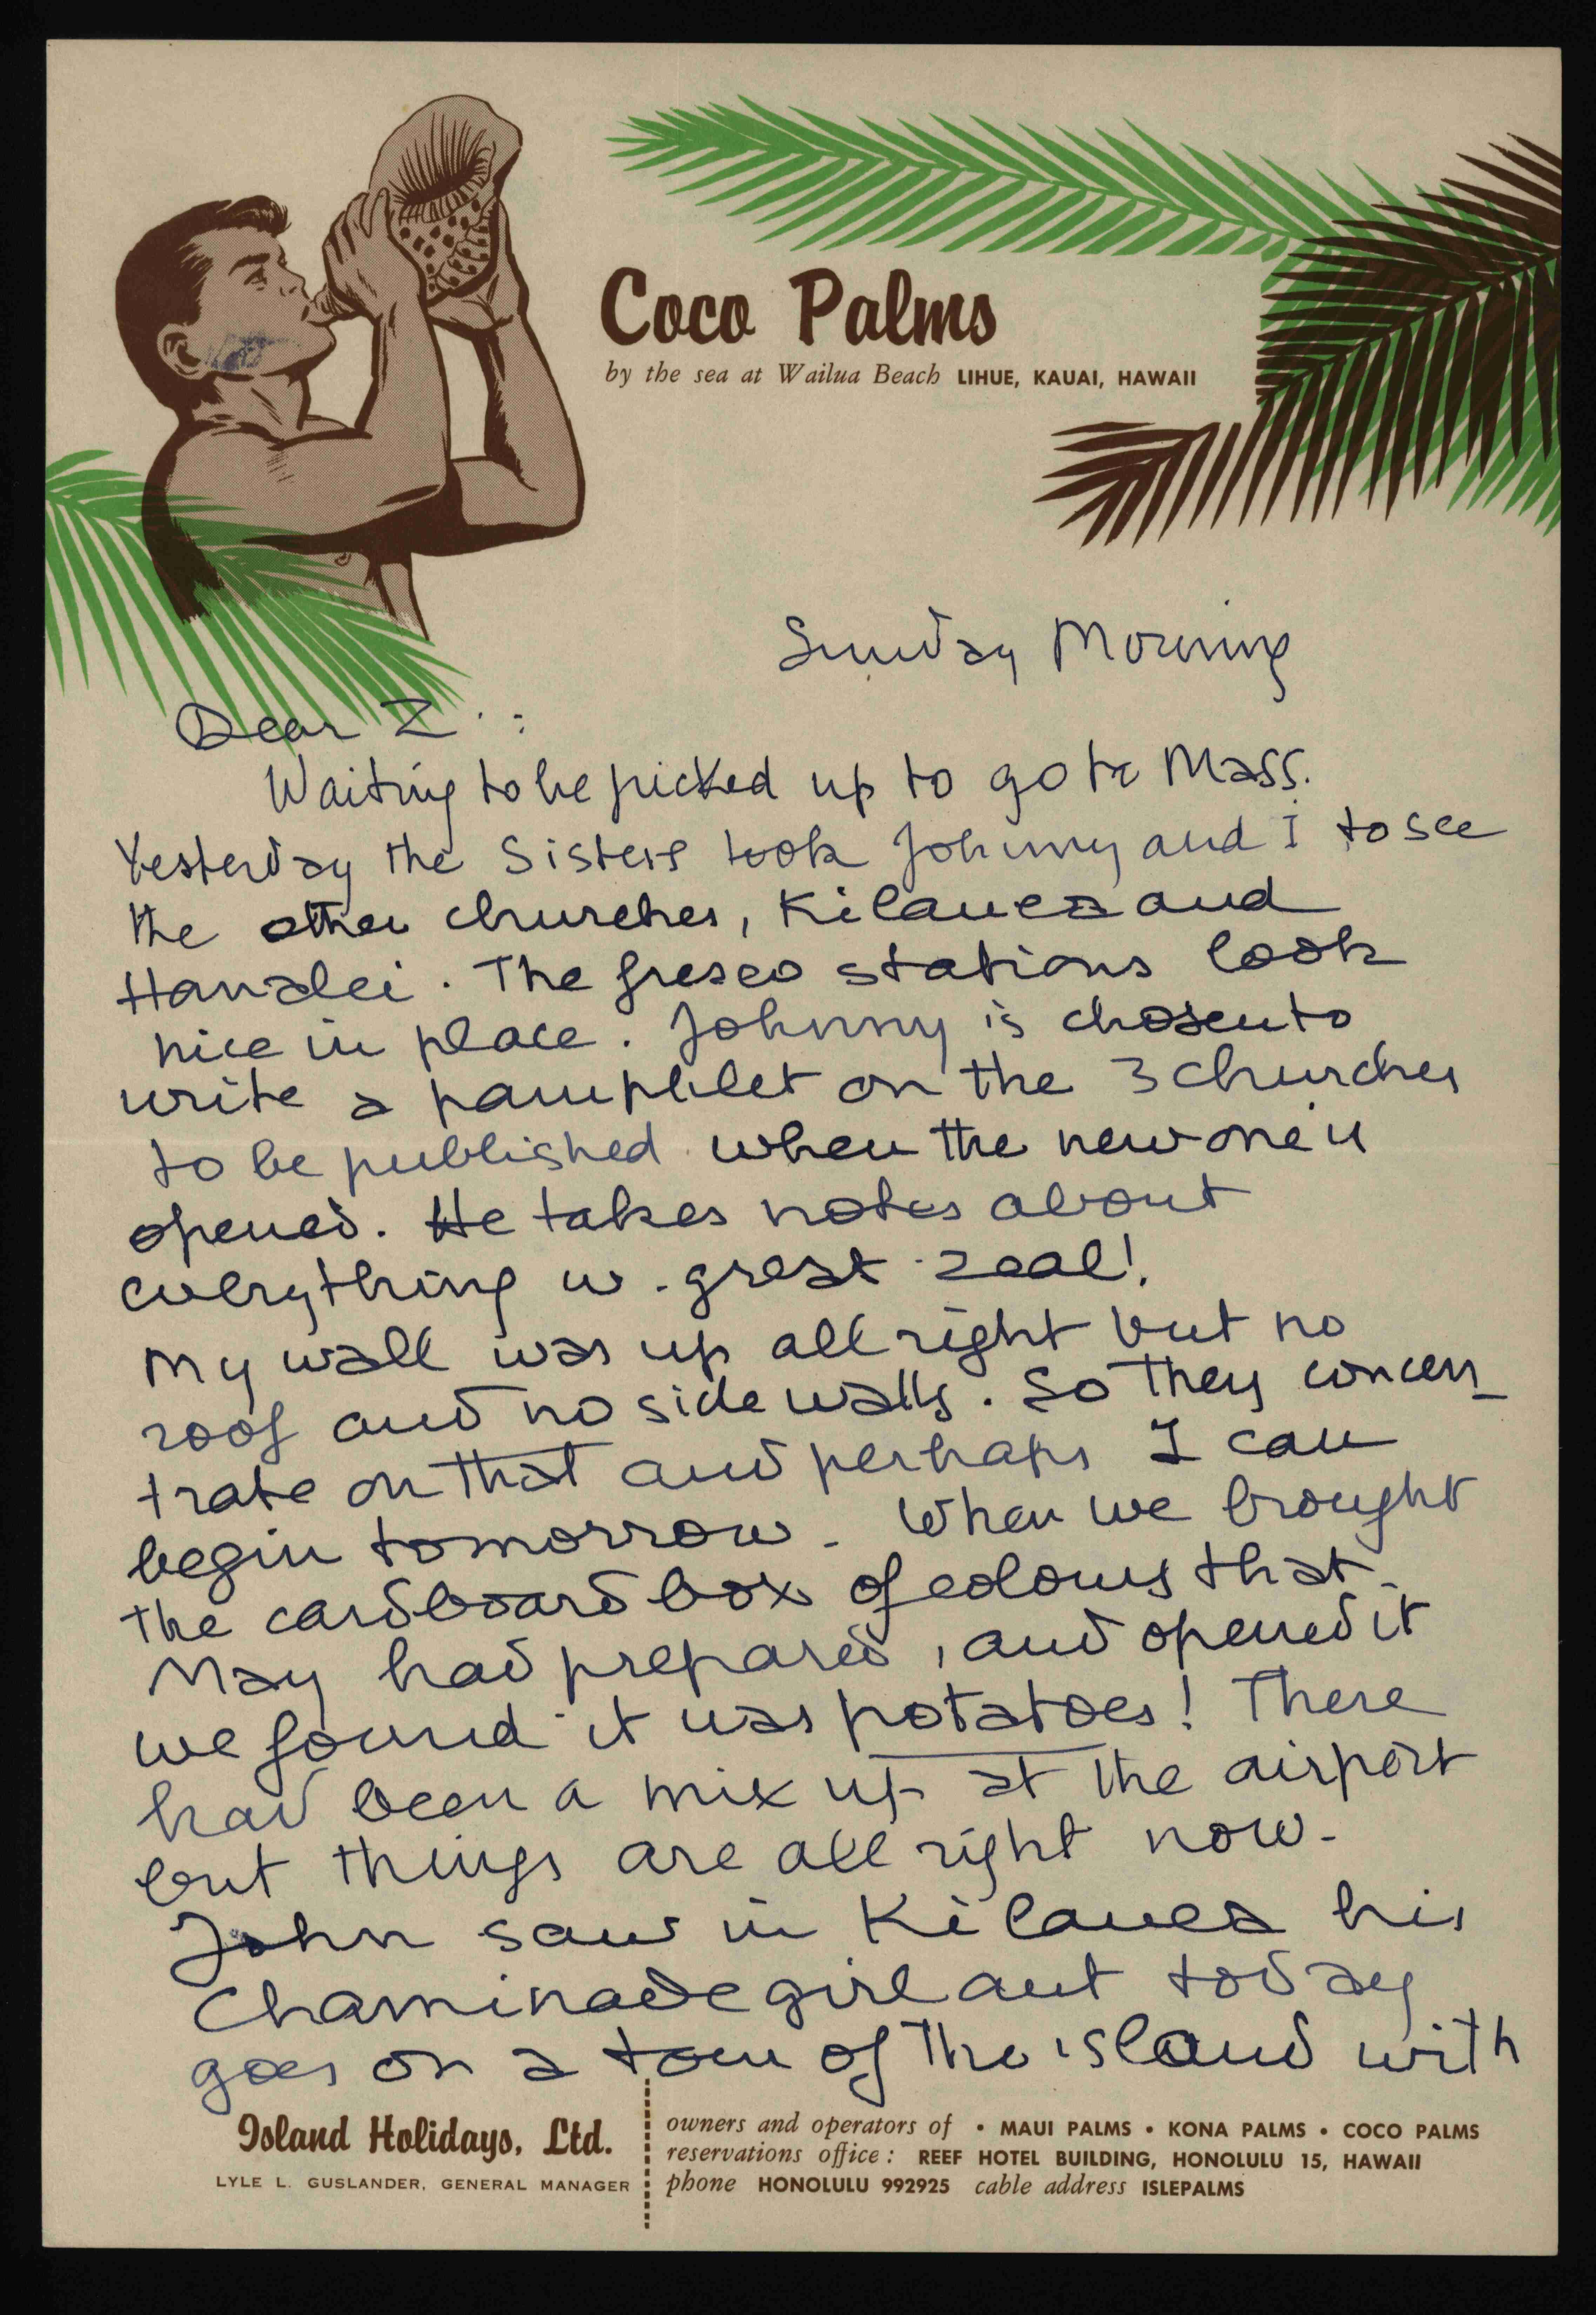 Coco Palms
by the sea at Wailua Beach LIHUE, KAUAI, HAWAII
Sunday Morning
Dear Z . :
Waiting to be picked up to go to Mass.
Yesterday the Sisters took Johnny and I to see
the other churches, Kilauea and
Hanalei. The fresco stations look
nice in place. Johnny is chosen to
write a pamphlet on the 3 churches
to be published when the new one is
opened. He takes notes about
everything w. great zeal!
My wall was up all right but no
roof and no side walls. So they concen-
trate on that and perhaps I can
begin tomorrow. When we brought
the cardboard box of colours that
May had prepared, and opened it
we found it was potatoes! There
had been a mix up at the airport
but things are all right now.
John saw in Kilauea his
Chaminade girl aut today
goes on a tour of the island with
Island Holidays, Ltd.
LYLE L. GUSLANDER, GENERAL MANAGER
owners and operators of • MAUI PALMS • KONA PALMS • COCO PALMS
reservations office: REEF HOTEL BUILDING, HONOLULU 15, HAWAII
phone HONOLULU 992925 cable address ISLEPALMS